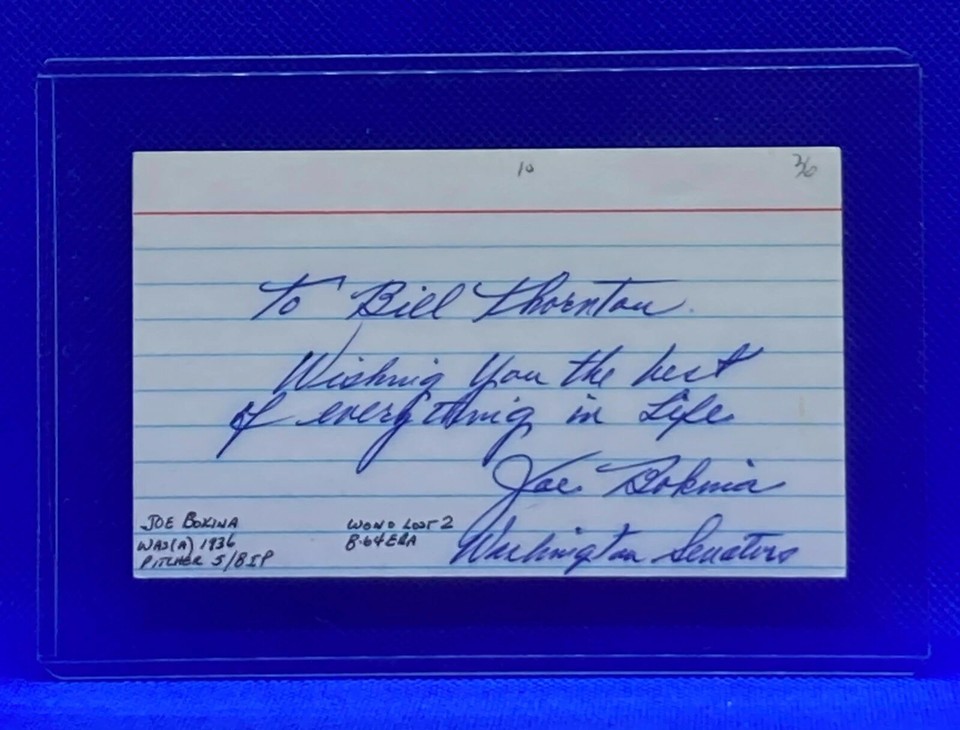 10
36
To Bill Thornton
Wishing You the best
of everything in Life
Joe Bokina
Washington Senators
JOE BOKINA
WAS(A) 1936
PITCHER 5/8 IP
WON 0 LOST 2
8.64 ERA